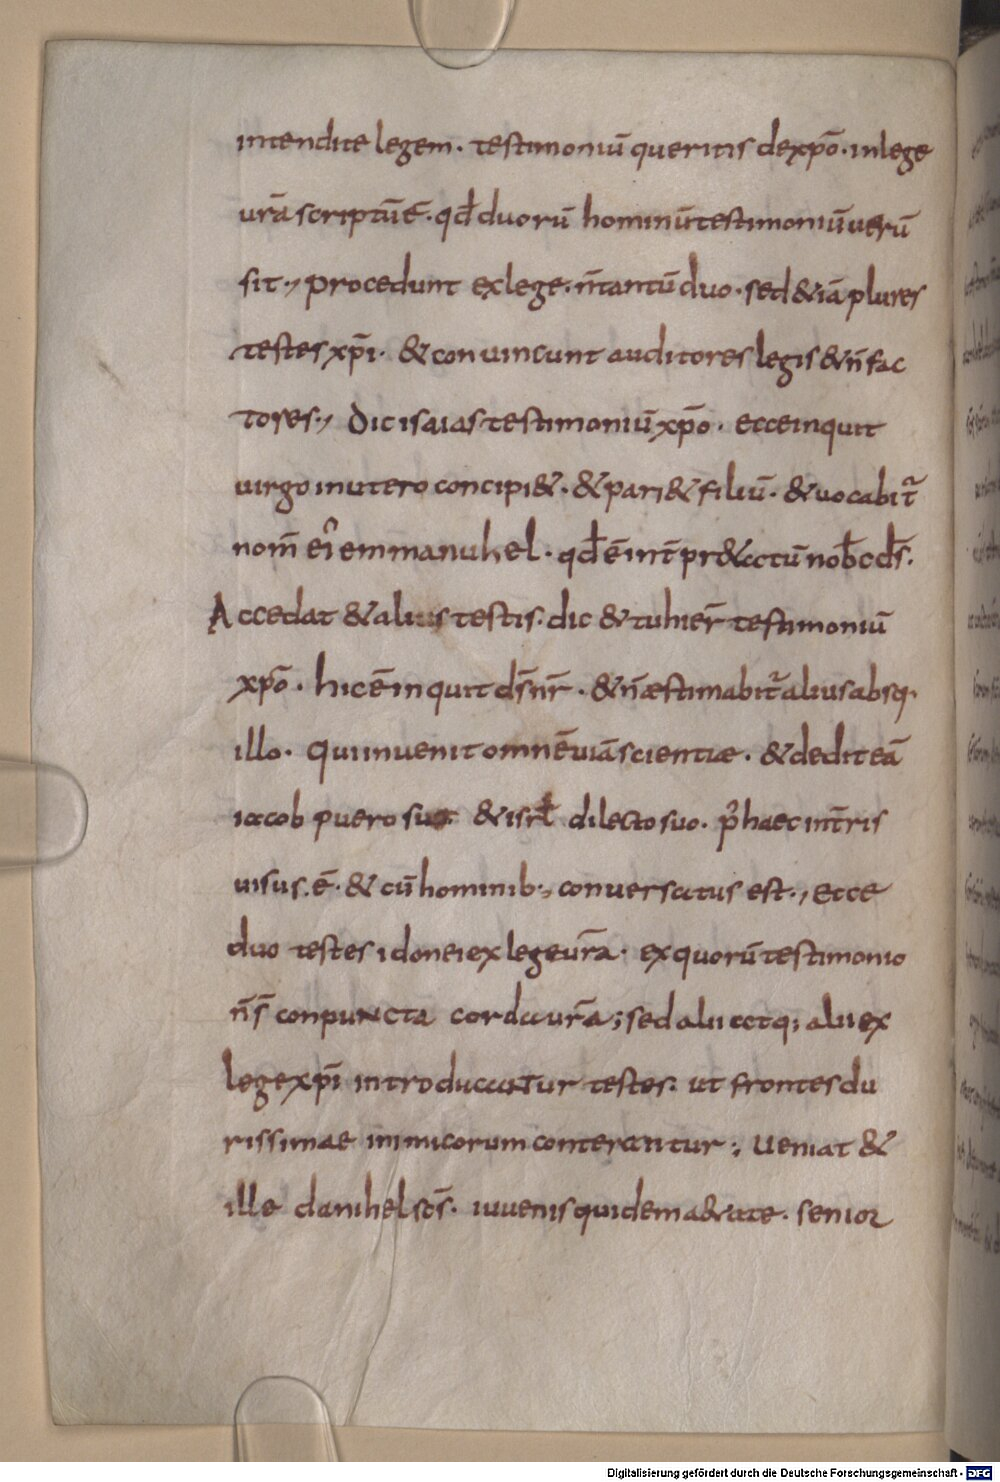 intendite legem. testimoniū queritis dexpō. inlege
urā scriptū ē. qđ duorū hominū testimoniū uerū
sit., procedunt exlege. n̄ tantū duo. sed &iā plures
testes xp̄i. & conuincunt auditores legis & n̄ fac
tores., Dic isaias testimoniū xp̄o. ecce inquit
uirgo inutero concipi&. & pari& filiū. & uocabit᷑
nom̄ ei᷑ emmanuhel. qđ ē int̄pr&atū nob̄cd̄s.
Accedat & alius testis. dic & tu hier̄ testimoniū
xp̄o. hic ē inquit d̄s n̄r. & n̄ æstimabit᷑ alius absq.
illo. Qui inuenit omnē uiā scientiæ. & dedit eā
iacob puero suo & isrł dilecto suo. p᷑ haec in t̄ris
uisus. ē. & cū hominib., conuersatus est., Ecce
duo testes idonei ex lege ur̄a. ex quorū testimonio
n̄ s̄ conpuncta corda ur̄a; sed alii atq; alii ex
lege xp̄i introducantur testes. ut frontes du
rissimae inimicorum conterantur; Ueniat &
ille danihel sc̄s. iuuenis quidem a&ate. senior
Digitalisierung gefördert durch die Deutsche Forschungsgemeinschaft - DFG